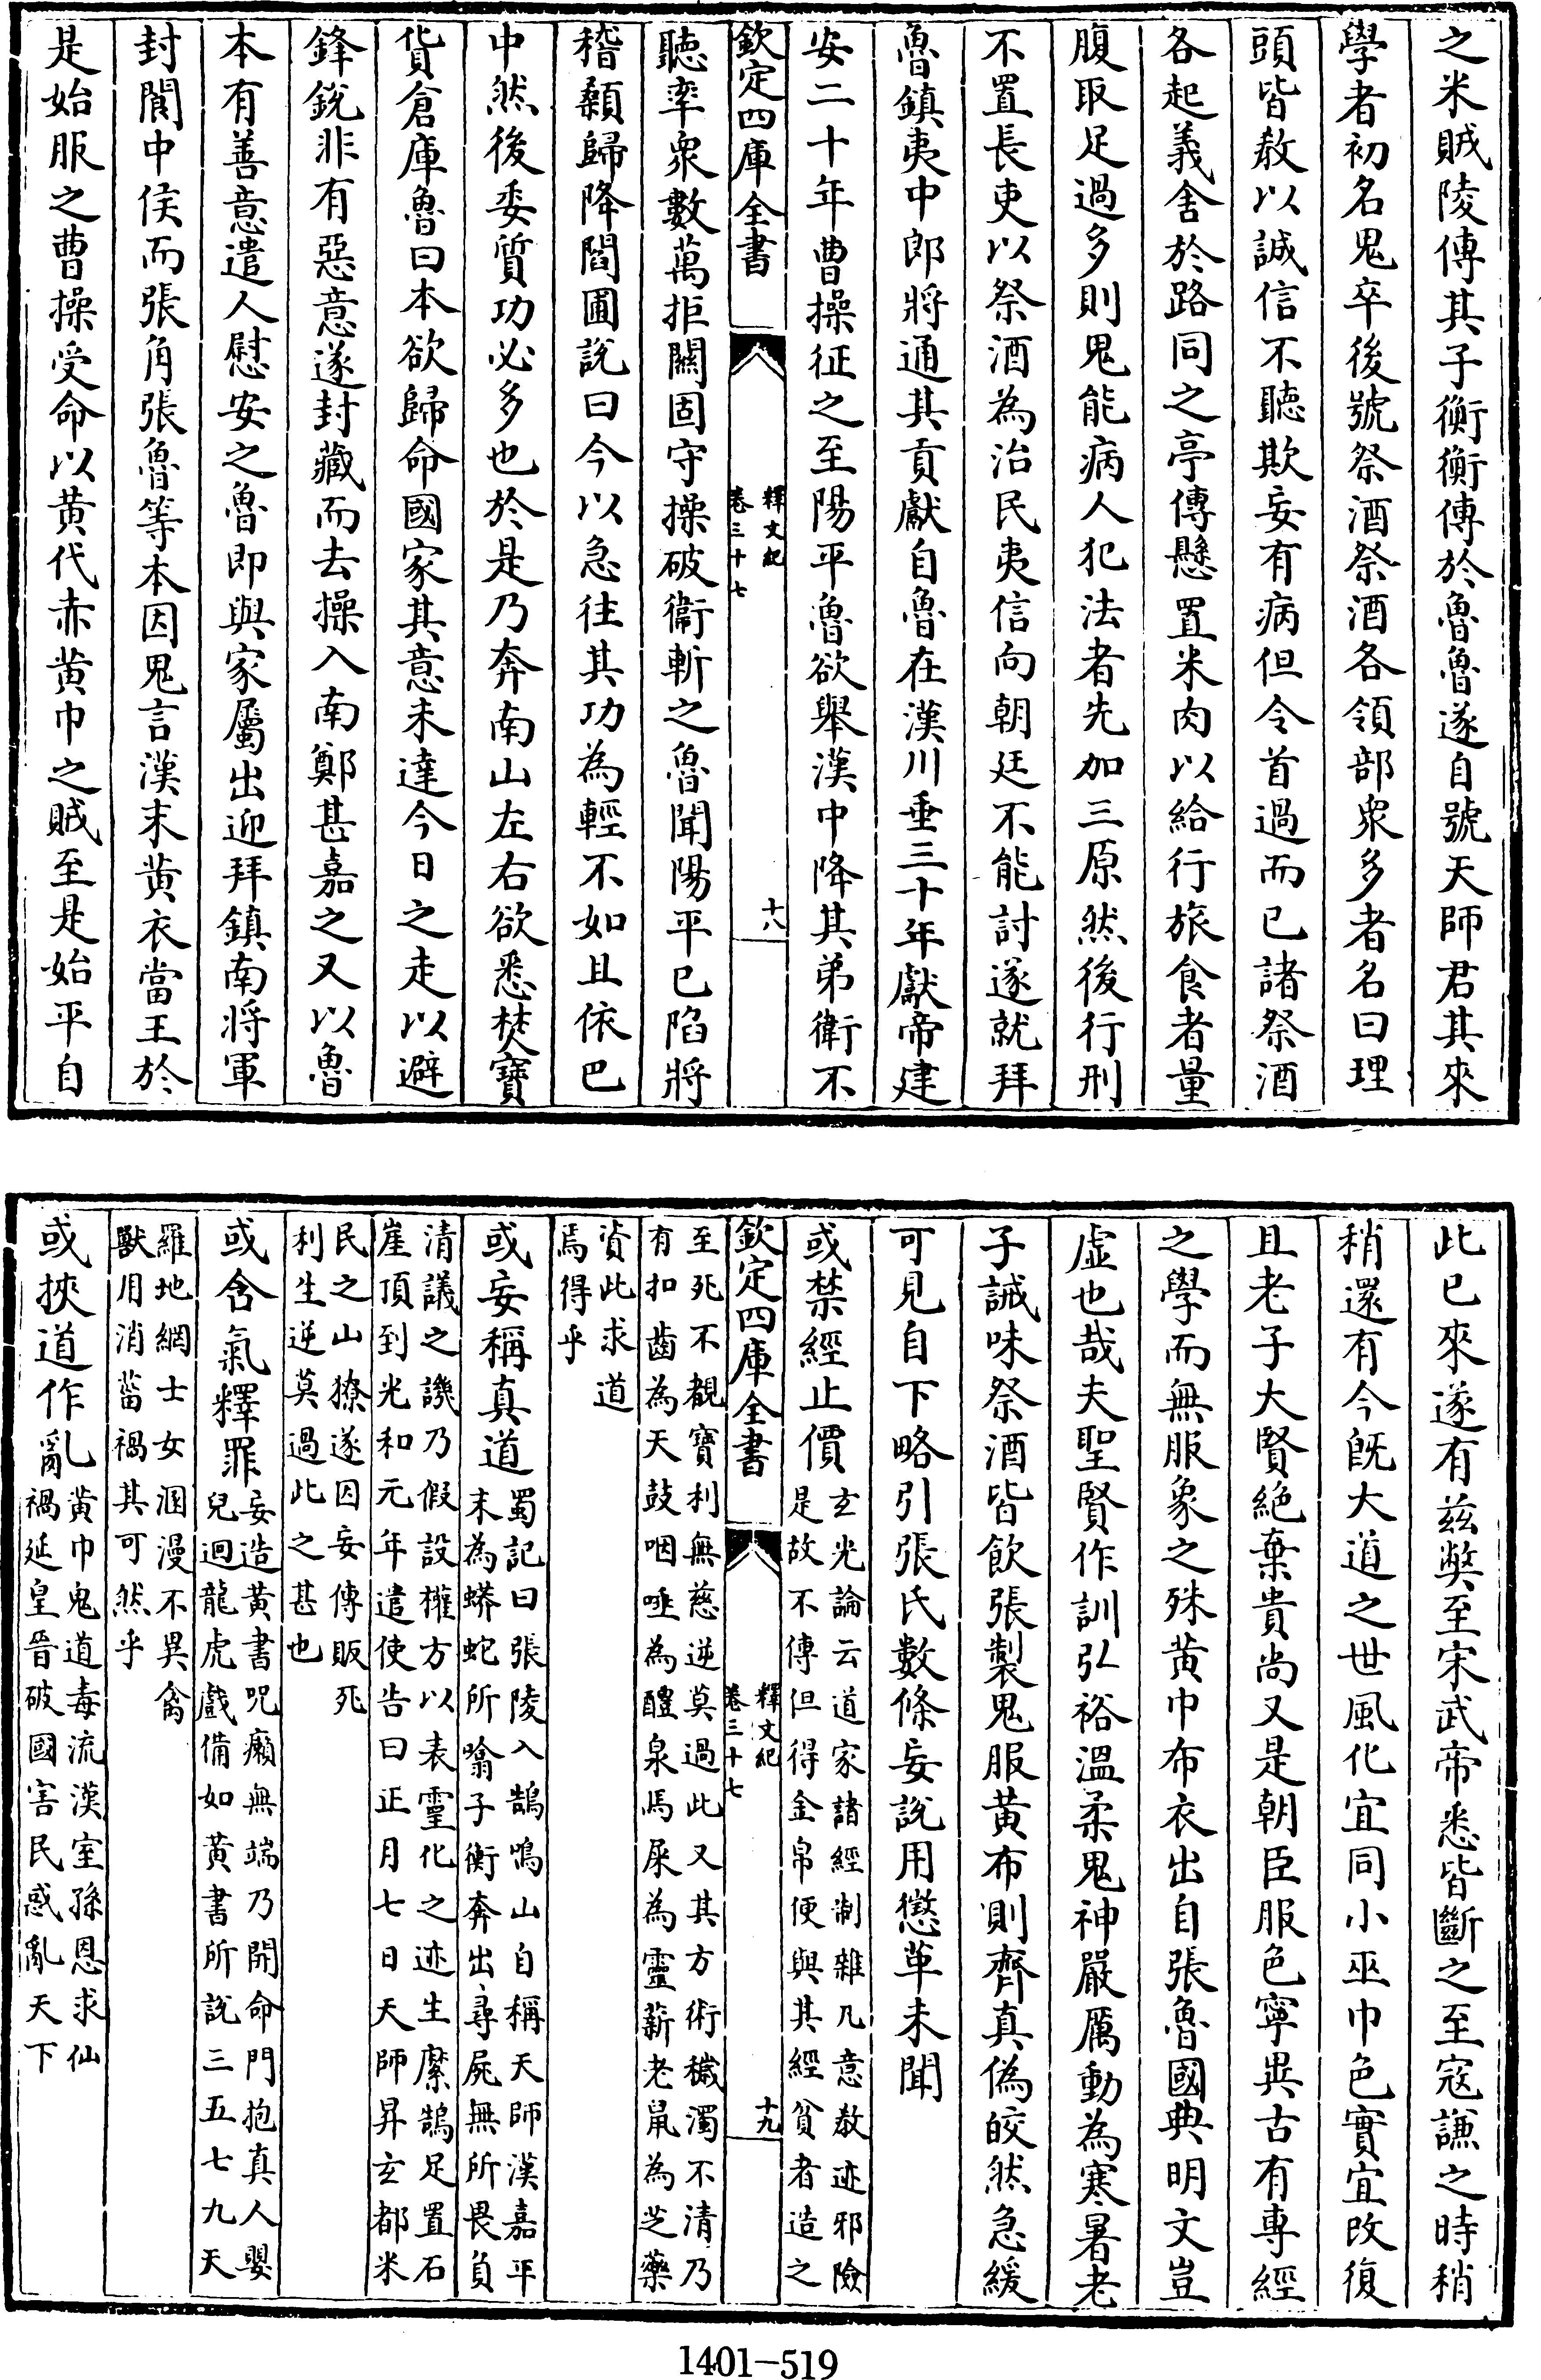 之米賊陵傳其子衡衡傳於魯魯遂自號天師君其來
學者初名鬼卒後號祭酒祭酒各領部衆多者名曰理
頭皆教以誠信不聽欺妄有病但令首過而已諸祭酒
各起義舍於路同之亭傳懸置米肉以給行旅食者量
腹取足過多則鬼能病人犯法者先加三原然後行刑
不置長吏以祭酒為治民夷信向朝廷不能討遂就拜
魯鎮夷中郎將通其貢獻自魯在漢川垂三十年獻帝建
安二十年曹操征之至陽平魯欲舉漢中降其弟衛不
欽定四庫全書
釋文紀
卷三十七
十八
聽率衆數萬拒關固守操破衞斬之魯聞陽平已陷將
稽顙歸降閻圃說曰今以急往其功為輕不如且依巴
中然後委質功必多也於是乃奔南山左右欲悉焚寶
貨倉庫魯曰本欲歸命國家其意未達今日之走以避
鋒銳非有惡意遂封藏而去操入南鄭甚嘉之又以魯
本有善意遣人慰安之魯即與家屬出迎拜鎮南將軍
封閬中侯而張角張魯等本因鬼言漢末黄衣當王於
是始服之曹操受命以黄代赤黄巾之賊至是始平自
此已來遂有兹弊至宋武帝悉皆斷之至寇謙之時稍
稍還有今既大道之世風化宜同小巫巾色實宜改復
且老子大賢絶棄貴尚又是朝臣服色寧異古有專經
之學而無服象之殊黄巾布衣出自張魯國典明文豈
虚也哉夫聖賢作訓弘裕溫柔鬼神嚴厲動為寒暑老
子誡味祭酒皆飲張製鬼服黄布則齊真偽皎然急緩
可見自下略引張氏數條妄說用懲革未聞
或禁經止價玄光論云道家諸經制雜凡意教迹邪險
是故不傳但得金帛便與其經貧者造之
欽定四庫全書
釋文紀
卷三十七
十九
至死不覩寶利無慈逆莫過此又其方術穢濁不清乃
有扣齒為天鼓咽唾為醴泉馬屎為靈薪老鼠為芝藥
資此求道
焉得乎
或妄稱真道蜀記曰張陵入鵠鳴山自稱天師漢嘉平
末為蟒蛇所噏子衡奔出尋屍無所畏負
清議之譏乃假設權方以表靈化之迹生縻鵠足置石
崖頂到光和元年遣使告曰正月七日天師昇玄都米
民之山獠遂因妄傳販死
利生逆莫過此之甚也
或含氣釋罪妄造黄書呪癩無端乃開命門抱真人嬰
兒迴龍虎戲備如黄書所說三五七九天
羅地網士女溷漫不異禽
獸用消菑禍其可然乎
或挾道作亂黄巾鬼道毒流漢室孫恩求仙
禍延皇晉破國害民惑亂天下
1401-519